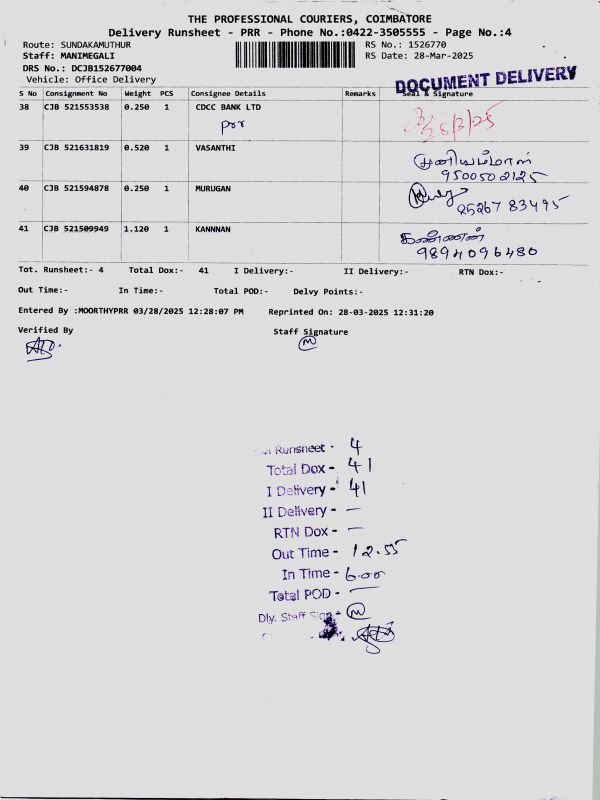 THE PROFESSIONAL COURIERS, COIMBATORE
Delivery Runsheet - PRR - Phone No.:0422-3505555 - Page No.:4
Route: SUNDAKAMUTHUR RS No.: 1526770
Staff: MANIMEGALI RS Date: 28-Mar-2025
DRS No.: DCJB152677004
Vehicle: Office Delivery
DOCUMENT DELIVERY
S No Consignment No Weight PCS Consignee Details Remarks Seal & Signature
38 CJB 521553538 0.250 1 CDCC BANK LTD
prr 28/3/25
39 CJB 521631819 0.520 1 VASANTHI
9500502125
40 CJB 521594878 0.250 1 MURUGAN
95267 83495
41 CJB 521509949 1.120 1 KANNNAN கண்ணன்
9894096480
Tot. Runsheet:- 4 Total Dox:- 41 I Delivery:- II Delivery:- RTN Dox:-
Out Time:- In Time:- Total POD:- Delvy Points:-
Entered By :MOORTHYPRR 03/28/2025 12:28:07 PM Reprinted On: 28-03-2025 12:31:20
Verified By Staff Signature
Runsheet - 4
Total Dox - 41
I Delivery - 41
II Delivery - —
RTN Dox - —
Out Time - 12.55
In Time - 6.00
Total POD - —
Dly. Staff Sign -